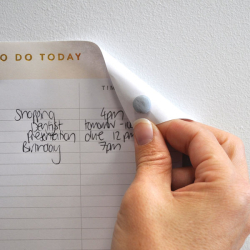 O DO TODAY
TI
Shopping 4pm
Dentist tomorrow
Presentation due 12 pm
Birthday 7pm